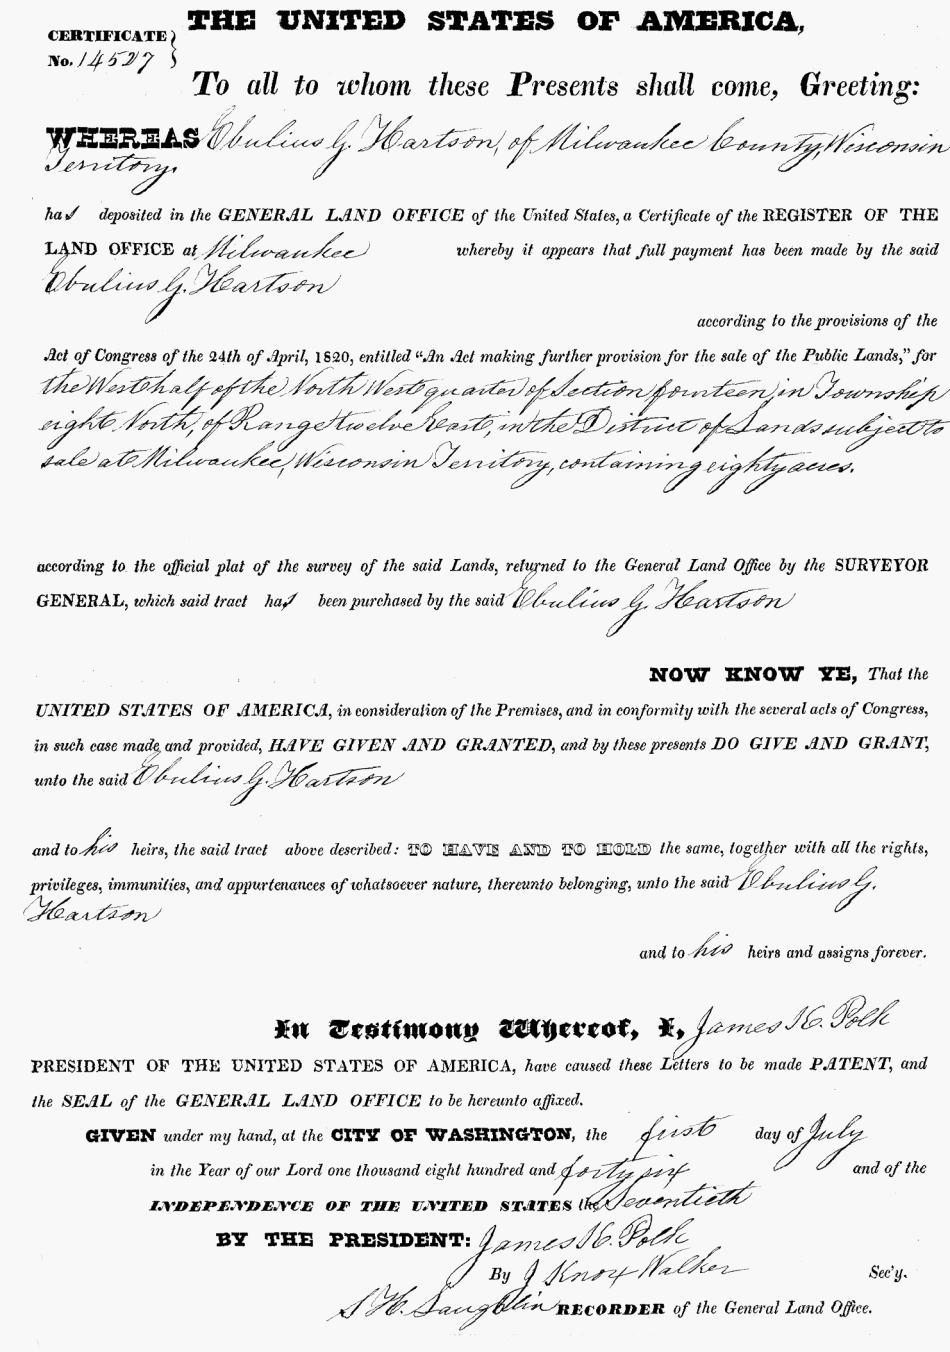 THE UNITED STATES OF AMERICA,
CERTIFICATE
No. 14527
To all to whom these Presents shall come, Greeting:
WHEREAS Ebulius G. Hartson, of Milwaukee County, Wisconsin
Territory,
has deposited in the GENERAL LAND OFFICE of the United States, a Certificate of the REGISTER OF THE
LAND OFFICE at Milwaukee whereby it appears that full payment has been made by the said
Ebulius G. Hartson
according to the provisions of the
Act of Congress of the 24th of April, 1820, entitled "An Act making further provision for the sale of the Public Lands," for
the West half of the North West quarter of Section fourteen, in Township
eight North, of Range twelve East, in the District of Lands subject to
sale at Milwaukee, Wisconsin Territory, containing eighty acres.
according to the official plat of the survey of the said Lands, returned to the General Land Office by the SURVEYOR
GENERAL, which said tract has been purchased by the said Ebulius G. Hartson
NOW KNOW YE, That the
UNITED STATES OF AMERICA, in consideration of the Premises, and in conformity with the several acts of Congress,
in such case made and provided, HAVE GIVEN AND GRANTED, and by these presents DO GIVE AND GRANT,
unto the said Ebulius G. Hartson
and to his heirs, the said tract above described: TO HAVE AND TO HOLD the same, together with all the rights,
privileges, immunities, and appurtenances of whatsoever nature, thereunto belonging, unto the said Ebulius G.
Hartson
and to his heirs and assigns forever.
In Testimony Whereof, I, James K. Polk
PRESIDENT OF THE UNITED STATES OF AMERICA, have caused these Letters to be made PATENT, and
the SEAL of the GENERAL LAND OFFICE to be hereunto affixed.
GIVEN under my hand, at the CITY OF WASHINGTON, the first day of July
in the Year of our Lord one thousand eight hundred and forty six and of the
INDEPENDENCE OF THE UNITED STATES the Seventieth
BY THE PRESIDENT: James K. Polk
By J Knox Walker Sec'y.
S H. Laughlin RECORDER of the General Land Office.